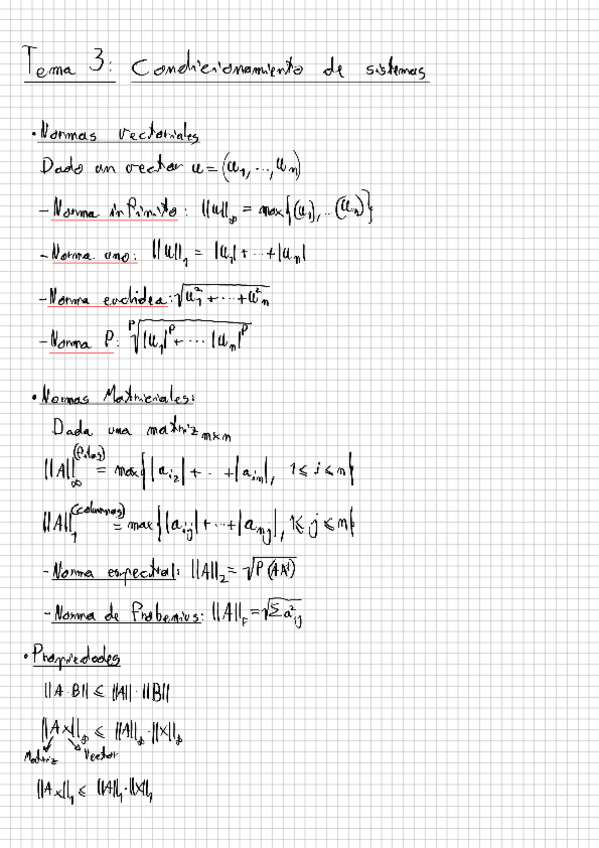 Tema 3: Condicionamiento de sistemas
• Normas vectoriales
Dado un vector u = (u₁, ..., uₙ)
- Norma infinito: ||u||∞ = max{(u₁), ... (uₙ)}
- Norma uno: ||u||₁ = |u₁| + ... + |uₙ|
- Norma euclidea: √(u₁² + ... + uₙ²)
- Norma P: ᴾ√(|u₁|ᴾ + ... |uₙ|ᴾ)
• Normas Matrieriales:
Dada una matriz mxn
||A||∞ (Filas) = max{|aᵢ₂| + ... + |aᵢₙ|, 1 ≤ i ≤ n}
||A||₁ (columnas) = max{|a₁ⱼ| + ... + |aₙⱼ|, 1 ≤ j ≤ n}
- Norma espectral: ||A||₂ = √(P(AAᵗ))
- Norma de Frobenius: ||A||F = √(Σ a²ᵢⱼ)
• Propiedades
||A·B|| ≤ ||A|| · ||B||
||Ax||∞ ≤ ||A||∞ · ||x||∞
Matriz Vector
||Ax||₁ ≤ ||A||₁ · ||x||₁